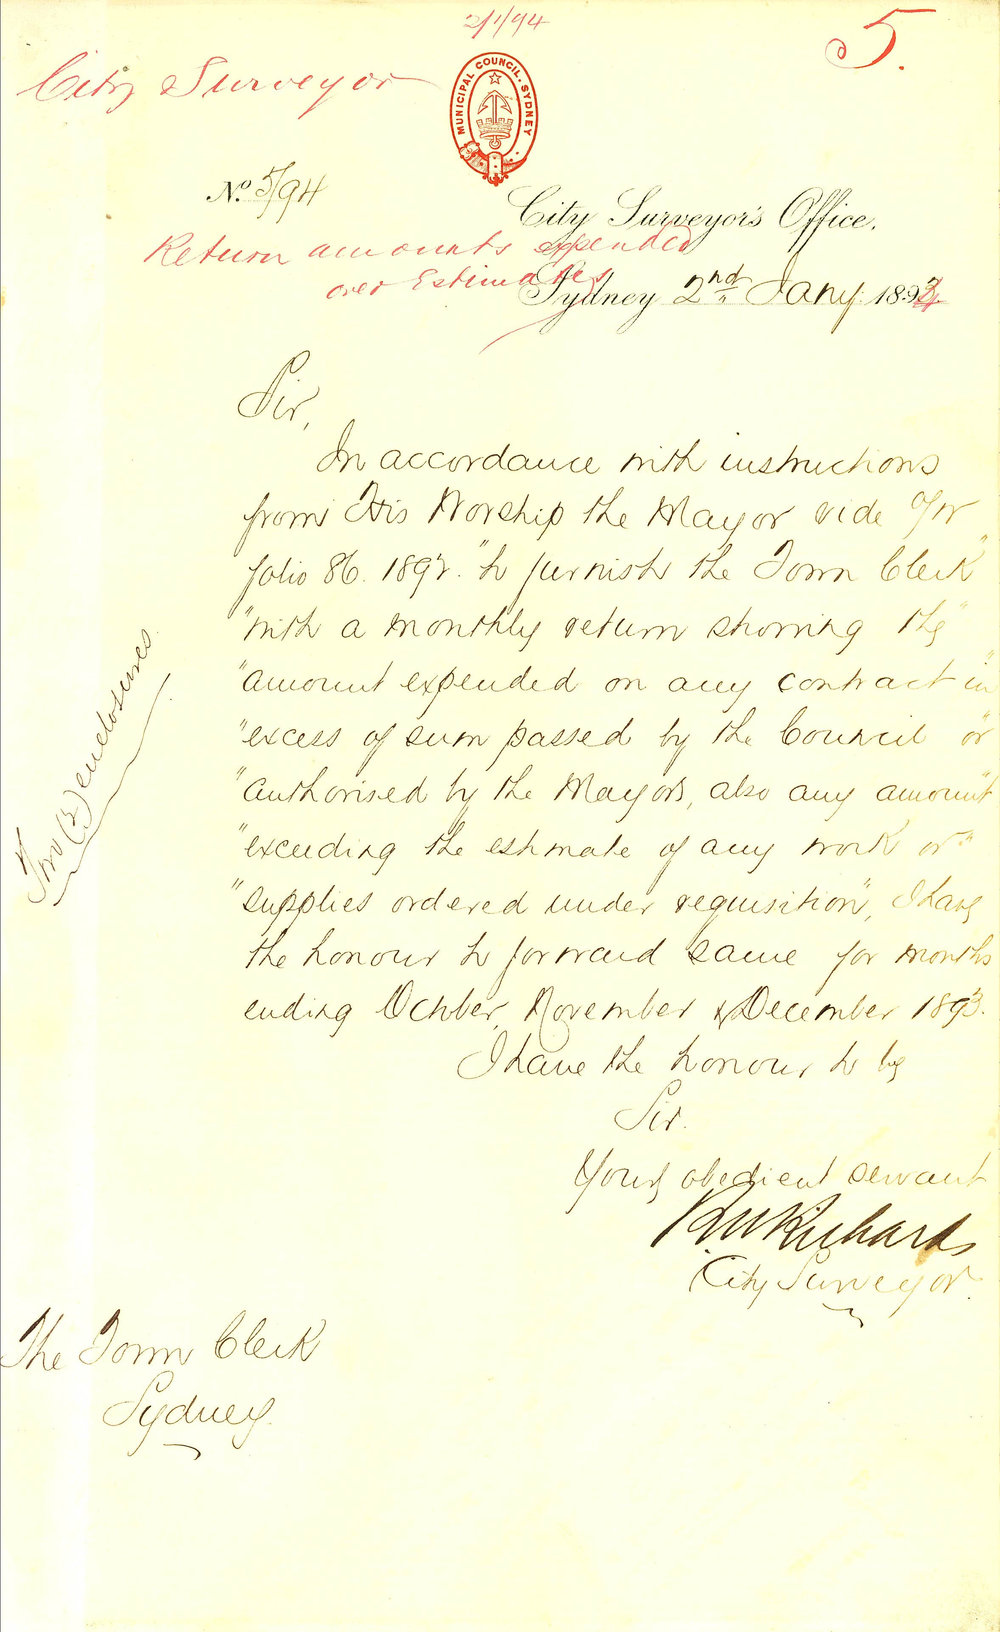 2/1/94
5.
City Surveyor
MUNICIPAL COUNCIL. SYDNEY
No. 5/94
City Surveyor's Office,
Return amounts expended
over Estimates
Sydney 2nd Jany. 1894
Sir,
In accordance with instructions
from His Worship the Mayor vide
folio 86. 1892. "to furnish the Town Clerk"
"with a monthly return showing the"
"amount expended on any contract in"
"excess of sum passed by the Council or"
"authorised by the Mayor, also any amount"
"exceeding the estimate of any work or"
"supplies ordered under requisition", I have
the honour to forward same for months
ending October, November & December 1893.
I have the honour to be
Sir.
Your obedient servant
Richards
City Surveyor.
The Town Clerk
Sydney.
Two (2) enclosures